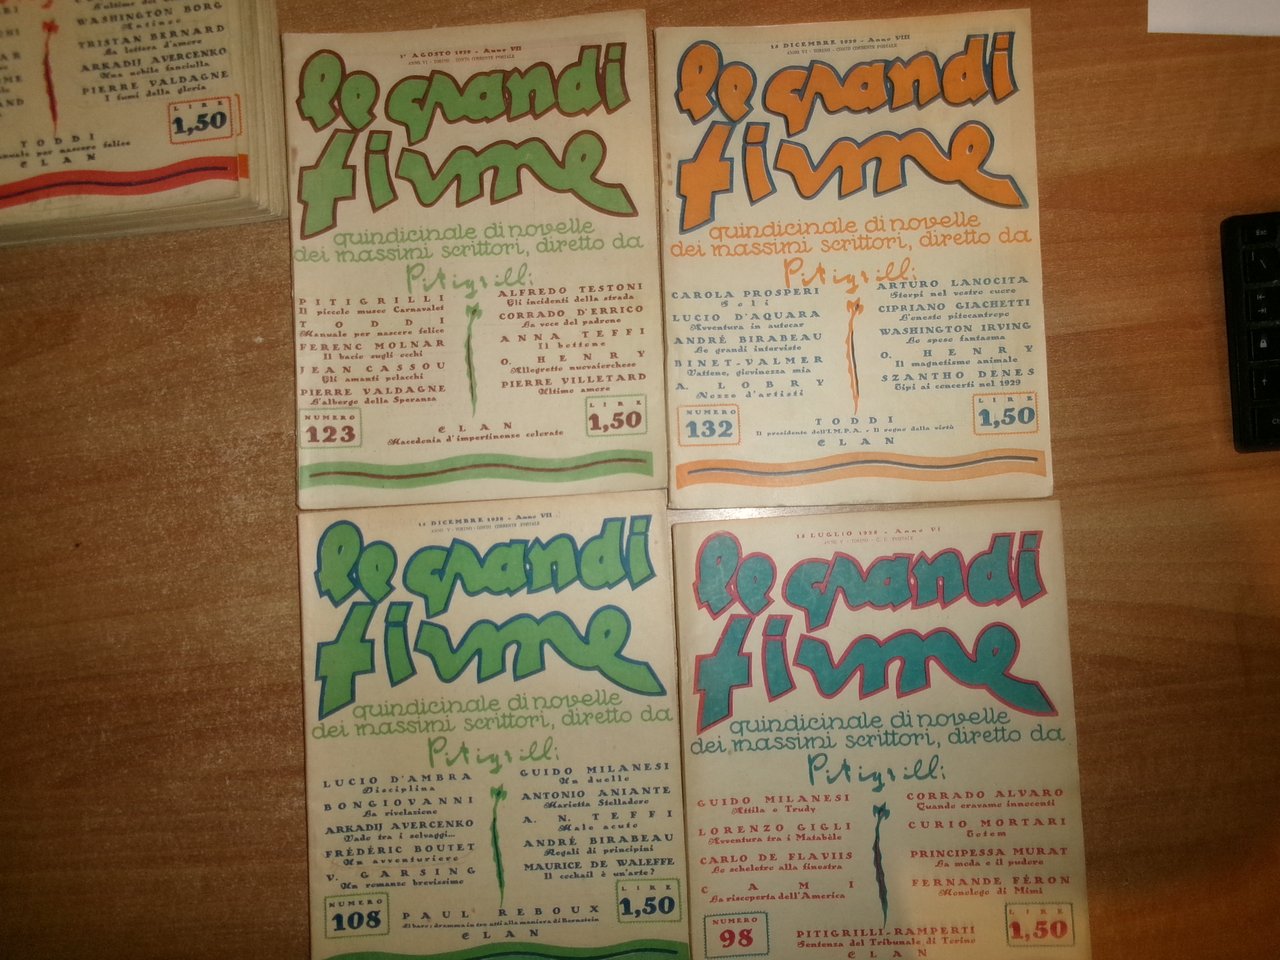 WASHINGTON BORG
TRISTAN BERNARD
La lettera d'amore
ARKADIJ AVERCENKO
Una nobile fanciulla
PIERRE VALDAGNE
I fumi della gloria
LIRE
1,50
TODDI
Manuale per nascere felice
CLAN
1° AGOSTO 1929 - Anno VII
ANNO VI - TORINO - CONTO CORRENTE POSTALE
le grandi
firme
quindicinale di novelle
dei massimi scrittori, diretto da
Pitigrilli
PITIGRILLI
Il piccolo museo Carnavalet
TODDI
Manuale per nascere felice
FERENC MOLNAR
Il bacio sugli occhi
JEAN CASSOU
Gli amanti polacchi
PIERRE VALDAGNE
L'albergo della Speranza
ALFREDO TESTONI
Gli incidenti della strada
CORRADO D'ERRICO
La voce del padrone
ANNA TEFFI
Il bottone
O. HENRY
Allegretto nuovaiorchese
PIERRE VILLETARD
Ultimo amore
NUMERO
123
CLAN
Macedonia d'impertinenze colorate
LIRE
1,50
15 DICEMBRE 1929 - Anno VIII
ANNO VI - TORINO - CONTO CORRENTE POSTALE
le grandi
firme
quindicinale di novelle
dei massimi scrittori, diretto da
Pitigrilli
CAROLA PROSPERI
Soli
LUCIO D'AQUARA
Avventura in autocar
ANDRÉ BIRABEAU
Le grandi interviste
BINET-VALMER
Vattene, giovinezza mia
A. LOBRY
Nozze d'artisti
ARTURO LANOCITA
Sterpi nel vostro cuore
CIPRIANO GIACHETTI
L'onesto pitecantropo
WASHINGTON IRVING
Lo sposo fantasma
O. HENRY
Il magnetismo animale
SZANTHO DENES
Tipi ai concerti nel 1929
NUMERO
132
TODDI
Il presidente dell'I.M.P.A. - Il regno della virtù
CLAN
LIRE
1,50
15 DICEMBRE 1928 - Anno VII
ANNO V - TORINO - CONTO CORRENTE POSTALE
le grandi
firme
quindicinale di novelle
dei massimi scrittori, diretto da
Pitigrilli
LUCIO D'AMBRA
Disciplina
BONGIOVANNI
La rivelazione
ARKADIJ AVERCENKO
Vado tra i selvaggi...
FRÉDÉRIC BOUTET
Un avventuriero
V. GARSING
Un romanzo brevissimo
GUIDO MILANESI
Un duello
ANTONIO ANIANTE
Marietta Stelladoro
A. N. TEFFI
Male acuto
ANDRÉ BIRABEAU
Regali di principini
MAURICE DE WALEFFE
Il cockail è un'arte?
NUMERO
108
PAUL REBOUX
Il baro; dramma in tre atti alla maniera di Bernstein
CLAN
LIRE
1,50
15 LUGLIO 1928 - Anno VI
ANNO V - TORINO - C. C. POSTALE
le grandi
firme
quindicinale di novelle
dei massimi scrittori, diretto da
Pitigrilli
GUIDO MILANESI
Attila e Trudy
LORENZO GIGLI
Avventura tra i Matabèle
CARLO DE FLAVIIS
Lo scheletro alla finestra
CAMI
La riscoperta dell'America
CORRADO ALVARO
Quando eravamo innocenti
CURIO MORTARI
Totem
PRINCIPESSA MURAT
La moda e il pudore
FERNANDE FÉRON
Monologo di Mimì
NUMERO
98
PITIGRILLI-RAMPERTI
Sentenza del Tribunale di Torino
CLAN
LIRE
1,50
Esc